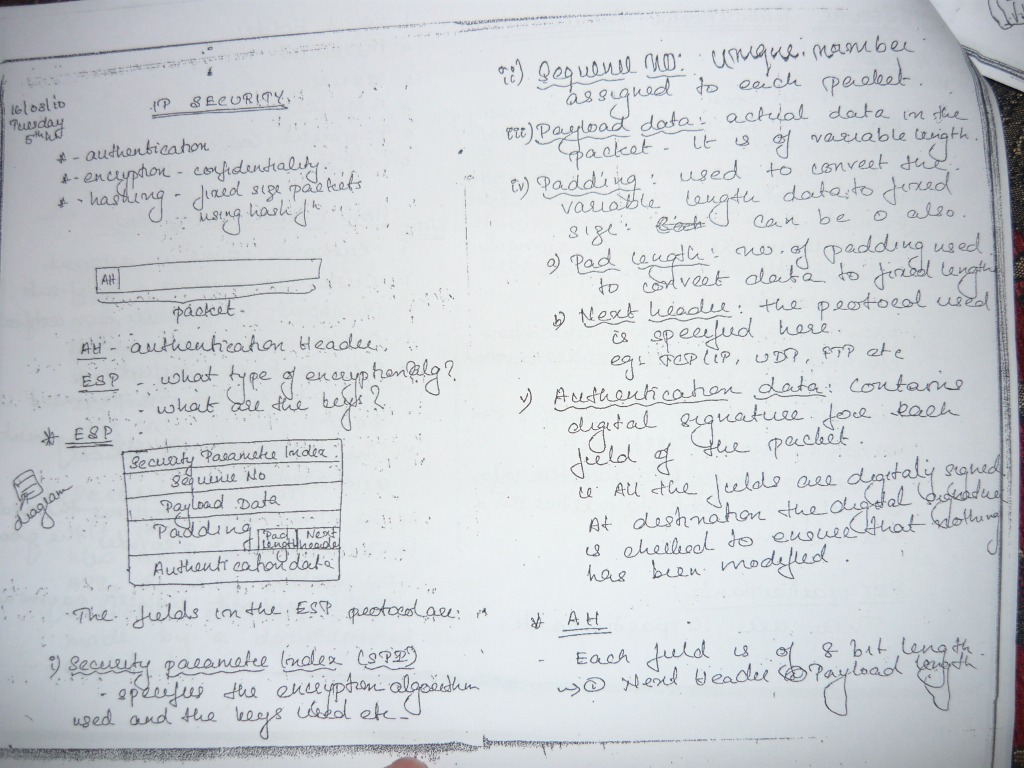 16/03/10
Tuesday
5th hr
IP SECURITY
* - authentication
* - encryption - confidentiality
* - hashing - fixed size packets
using hash fn
AH
packet.
AH - authentication Header.
ESP - what type of encryption alg?
- what are the keys?
* ESP
diagram
Security Parameter Index
Sequence No
Payload Data
Padding
Pad length
Next header
Authentication data
The fields in the ESP protocol are:
i) Security parameter Index (SPI)
- specifies the encryption algorithm
used and the keys used etc -
ii) Sequence NO: Unique number
assigned to each packet.
iii) Payload data: actual data in the
packet - It is of variable length.
iv) Padding: used to convert the
variable length data to fixed
size: can be 0 also.
a) Pad length: no. of padding used
to convert data to fixed length
b) Next header: the protocol used
is specified here.
eg: TCP/IP, UDP, FTP etc
v) Authentication data: contains
digital signature for each
field of the packet.
ie All the fields are digitally signed
At destination the digital signature
is checked to ensure that nothing
has been modified.
* AH
- Each field is of 8 bit length
① Next Header ② Payload length